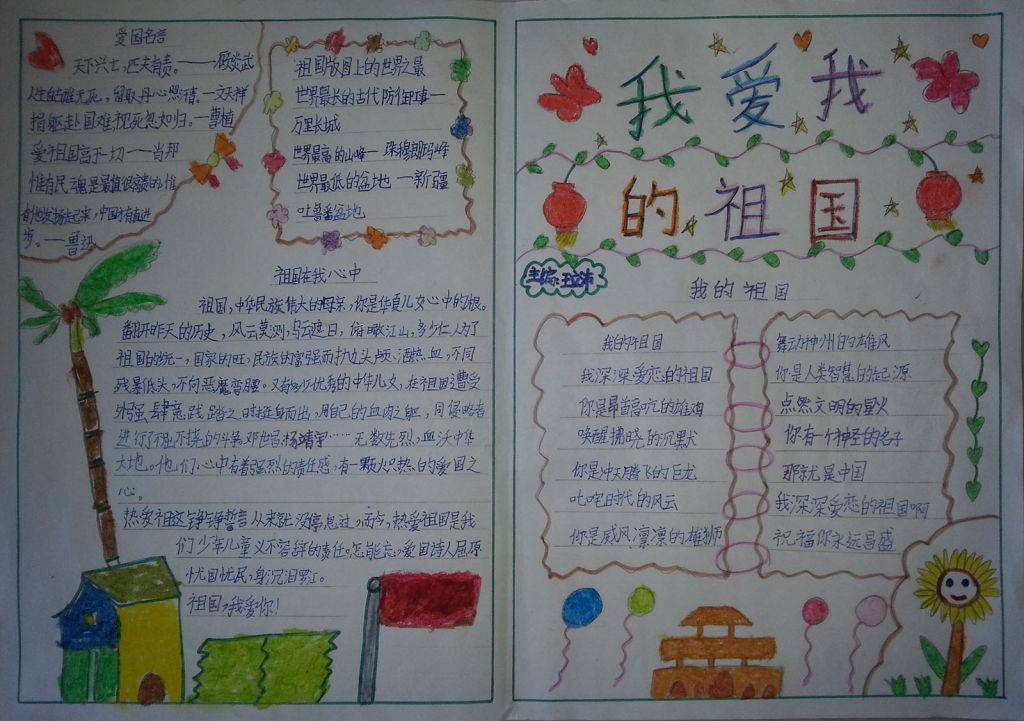 爱国名言
天下兴亡,匹夫有责。——顾炎武
人生自古谁无死,留取丹心照汗青。—文天祥
捐躯赴国难,视死忽如归。—曹植
爱祖国高于一切——肖邦
惟有民魂是最值得宝贵的,惟
有他发扬起来,中国才有真进
步。——鲁迅
祖国版图上的世界之最
世界最长的古代防御工事—
万里长城
世界最高的山峰—珠穆朗玛峰
世界最低的盆地—新疆
吐鲁番盆地
祖国在我心中
祖国,中华民族伟大的母亲,你是华夏儿女心中的根。
翻开昨天的历史,风云莫测,乌云遮日,俯瞰江山,多少仁人为了
祖国的统一,国家的旺,民族的富强而抛头颅、洒热血,不向
残暴低头,不向恶魔弯腰。又有多少优秀的中华儿女,在祖国遭受
外强肆意践踏之时挺身而出,用自己的血肉之躯,同侵略者
进行了不屈不挠的斗争。邓世昌、杨靖宇……无数先烈,血沃中华
大地。他们心中有着强烈的责任感,有一颗火只热的爱国之
心。
热爱祖国这铮铮誓言从来让没停息过,而今,热爱祖国是我
们少年儿童义不容辞的责任。怎能忘,爱国诗人屈原
忧国忧民,身沉汨罗江。
祖国,我爱你!
我爱我
的祖国
主编:王
我的祖国
我的祖国
我深深爱恋的祖国
你是昂首高吭的雄鸡
唤醒拂晓的沉默
你是冲天腾飞的巨龙
叱咤时代的风云
你是威风凛凛的雄狮
舞动神州的雄风
你是人类智慧的起源
点燃文明的星火
你有一个神圣的名子
那就是中国
我深深爱恋的祖国啊
祝福你永远昌盛